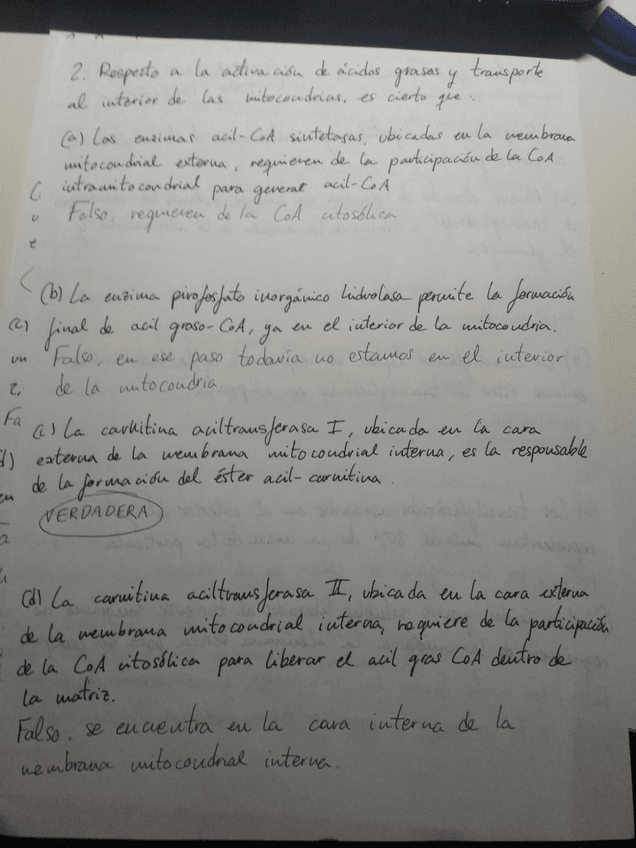 2. Respecto a la activación de ácidos grasos y transporte
al interior de las mitocondrias, es cierto que:
(a) Las enzimas acil-CoA sintetasas, ubicadas en la membrana
mitocondrial externa, requieren de la participación de la CoA
intramitocondrial para generar acil-CoA
Falso, requieren de la CoA citosólica
(b) La enzima pirofosfato inorgánico hidrolasa permite la formación
final de acil graso-CoA, ya en el interior de la mitocondria.
Falso, en ese paso todavía no estamos en el interior
de la mitocondria
(c) La carnitina aciltransferasa I, ubicada en la cara
externa de la membrana mitocondrial interna, es la responsable
de la formación del éster acil-carnitina.
VERDADERA
(d) La carnitina aciltransferasa II, ubicada en la cara externa
de la membrana mitocondrial interna, requiere de la participación
de la CoA citosólica para liberar el acil gras CoA dentro de
la matriz.
Falso. se encuentra en la cara interna de la
membrana mitocondrial interna.